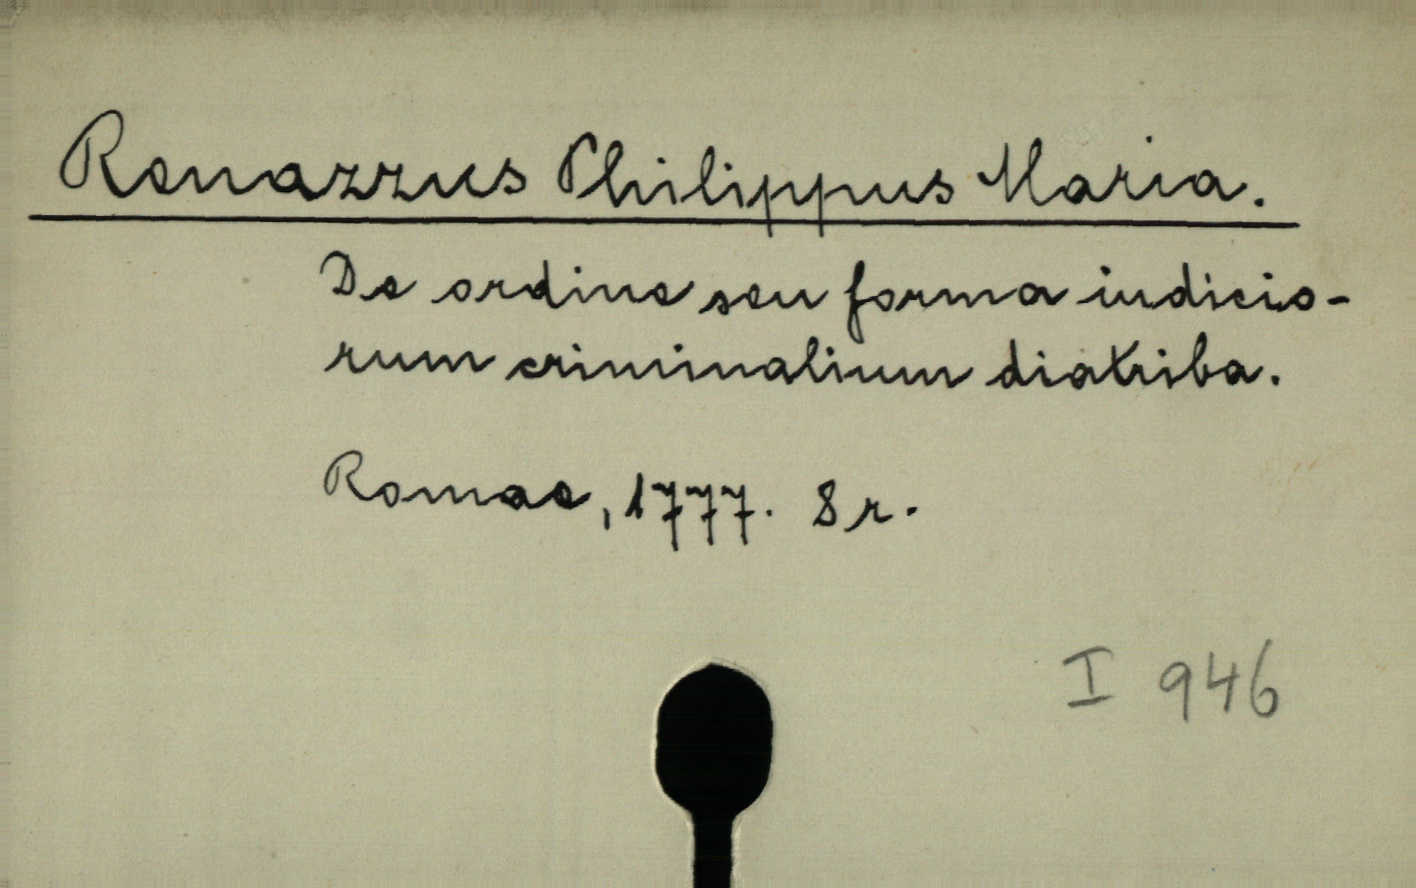 Renazzus Philippus Maria.
De ordine seu forma iudicio-
rum criminalium diatriba.
Romae, 1777. 8 r.
I 946